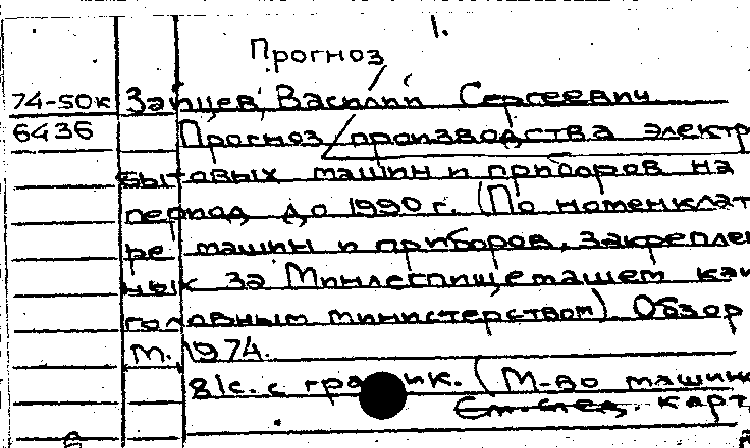 1.
Прогноз
74-50к Зайцев, Василий Сергеевич
6436 Прогноз производства электр
бытовых машин и приборов на
период до 1990 г. (По номенклат
ре машин и приборов, закреплен
ных за Минлегпищемашем как
головным министерством) Обзор
М. 1974.
81с. с график. (М-во машин
См. след. карт